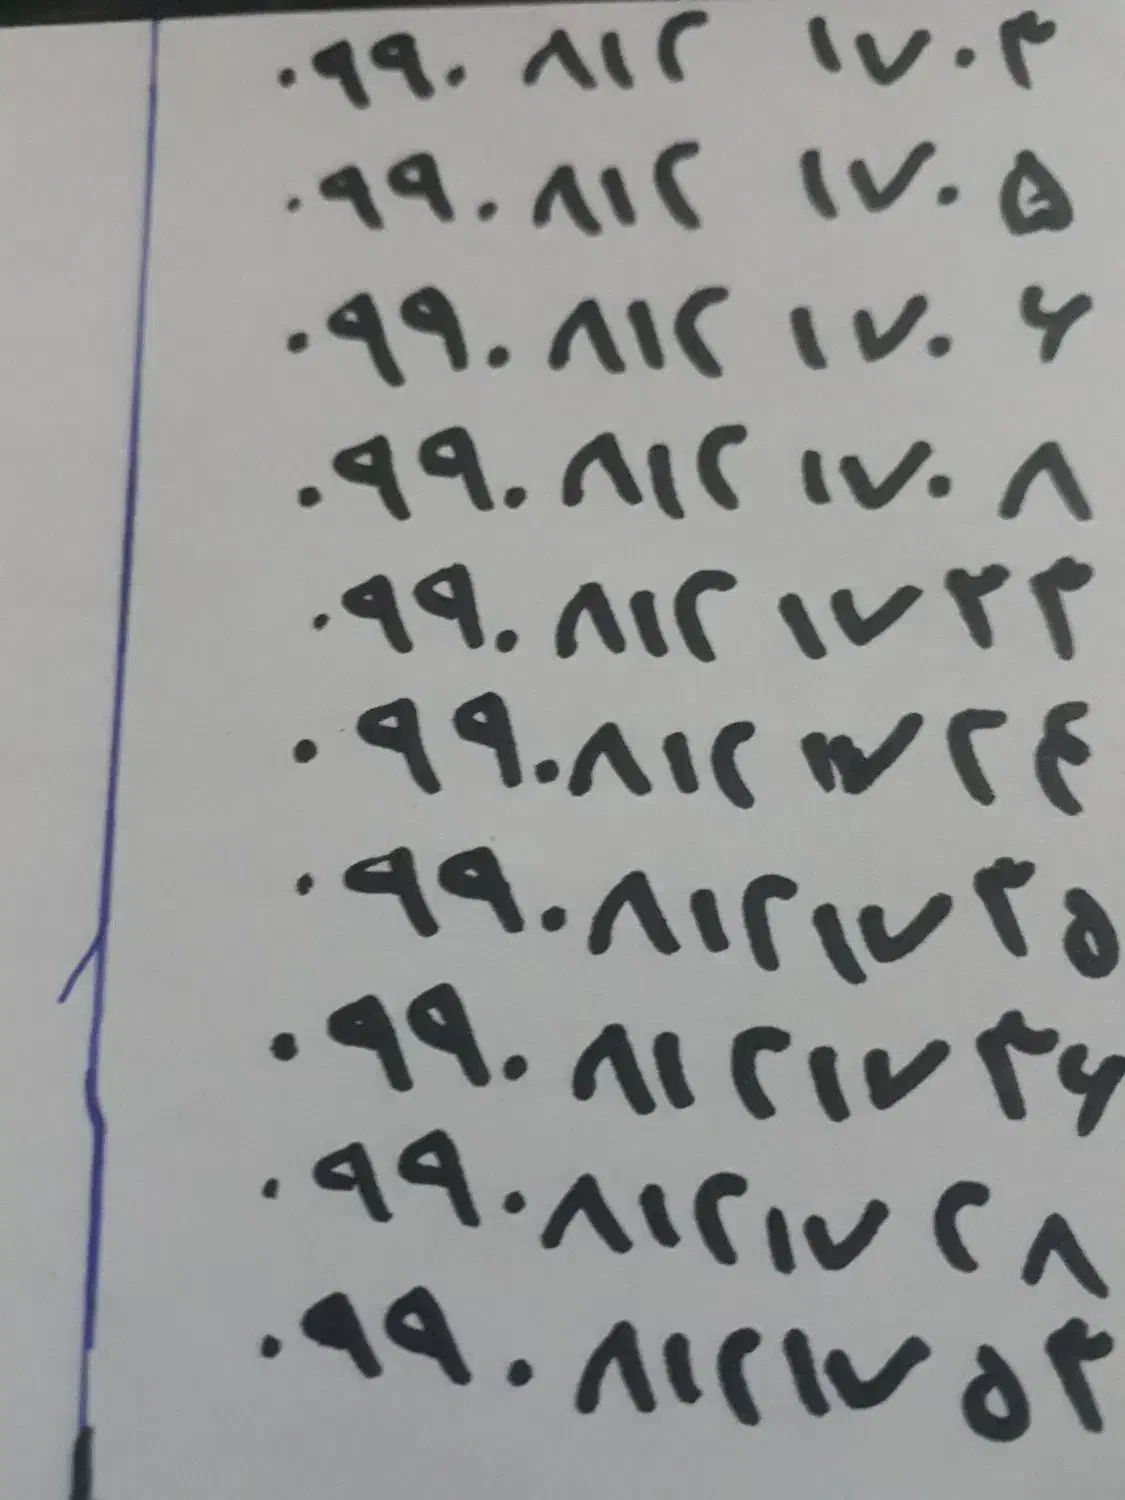 ۰۹۹۰ ۸۱۲ ۱۷۰۳
۰۹۹۰ ۸۱۲ ۱۷۰۵
۰۹۹۰ ۸۱۲ ۱۷۰۶
۰۹۹۰ ۸۱۲ ۱۷۰۸
۰۹۹۰ ۸۱۲ ۱۷۳۳
۰۹۹۰ ۸۱۲ ۱۷۲۴
۰۹۹۰ ۸۱۲ ۱۷۳۵
۰۹۹۰ ۸۱۲ ۱۷۳۶
۰۹۹۰ ۸۱۲ ۱۷۲۸
۰۹۹۰ ۸۱۲ ۱۷۵۳